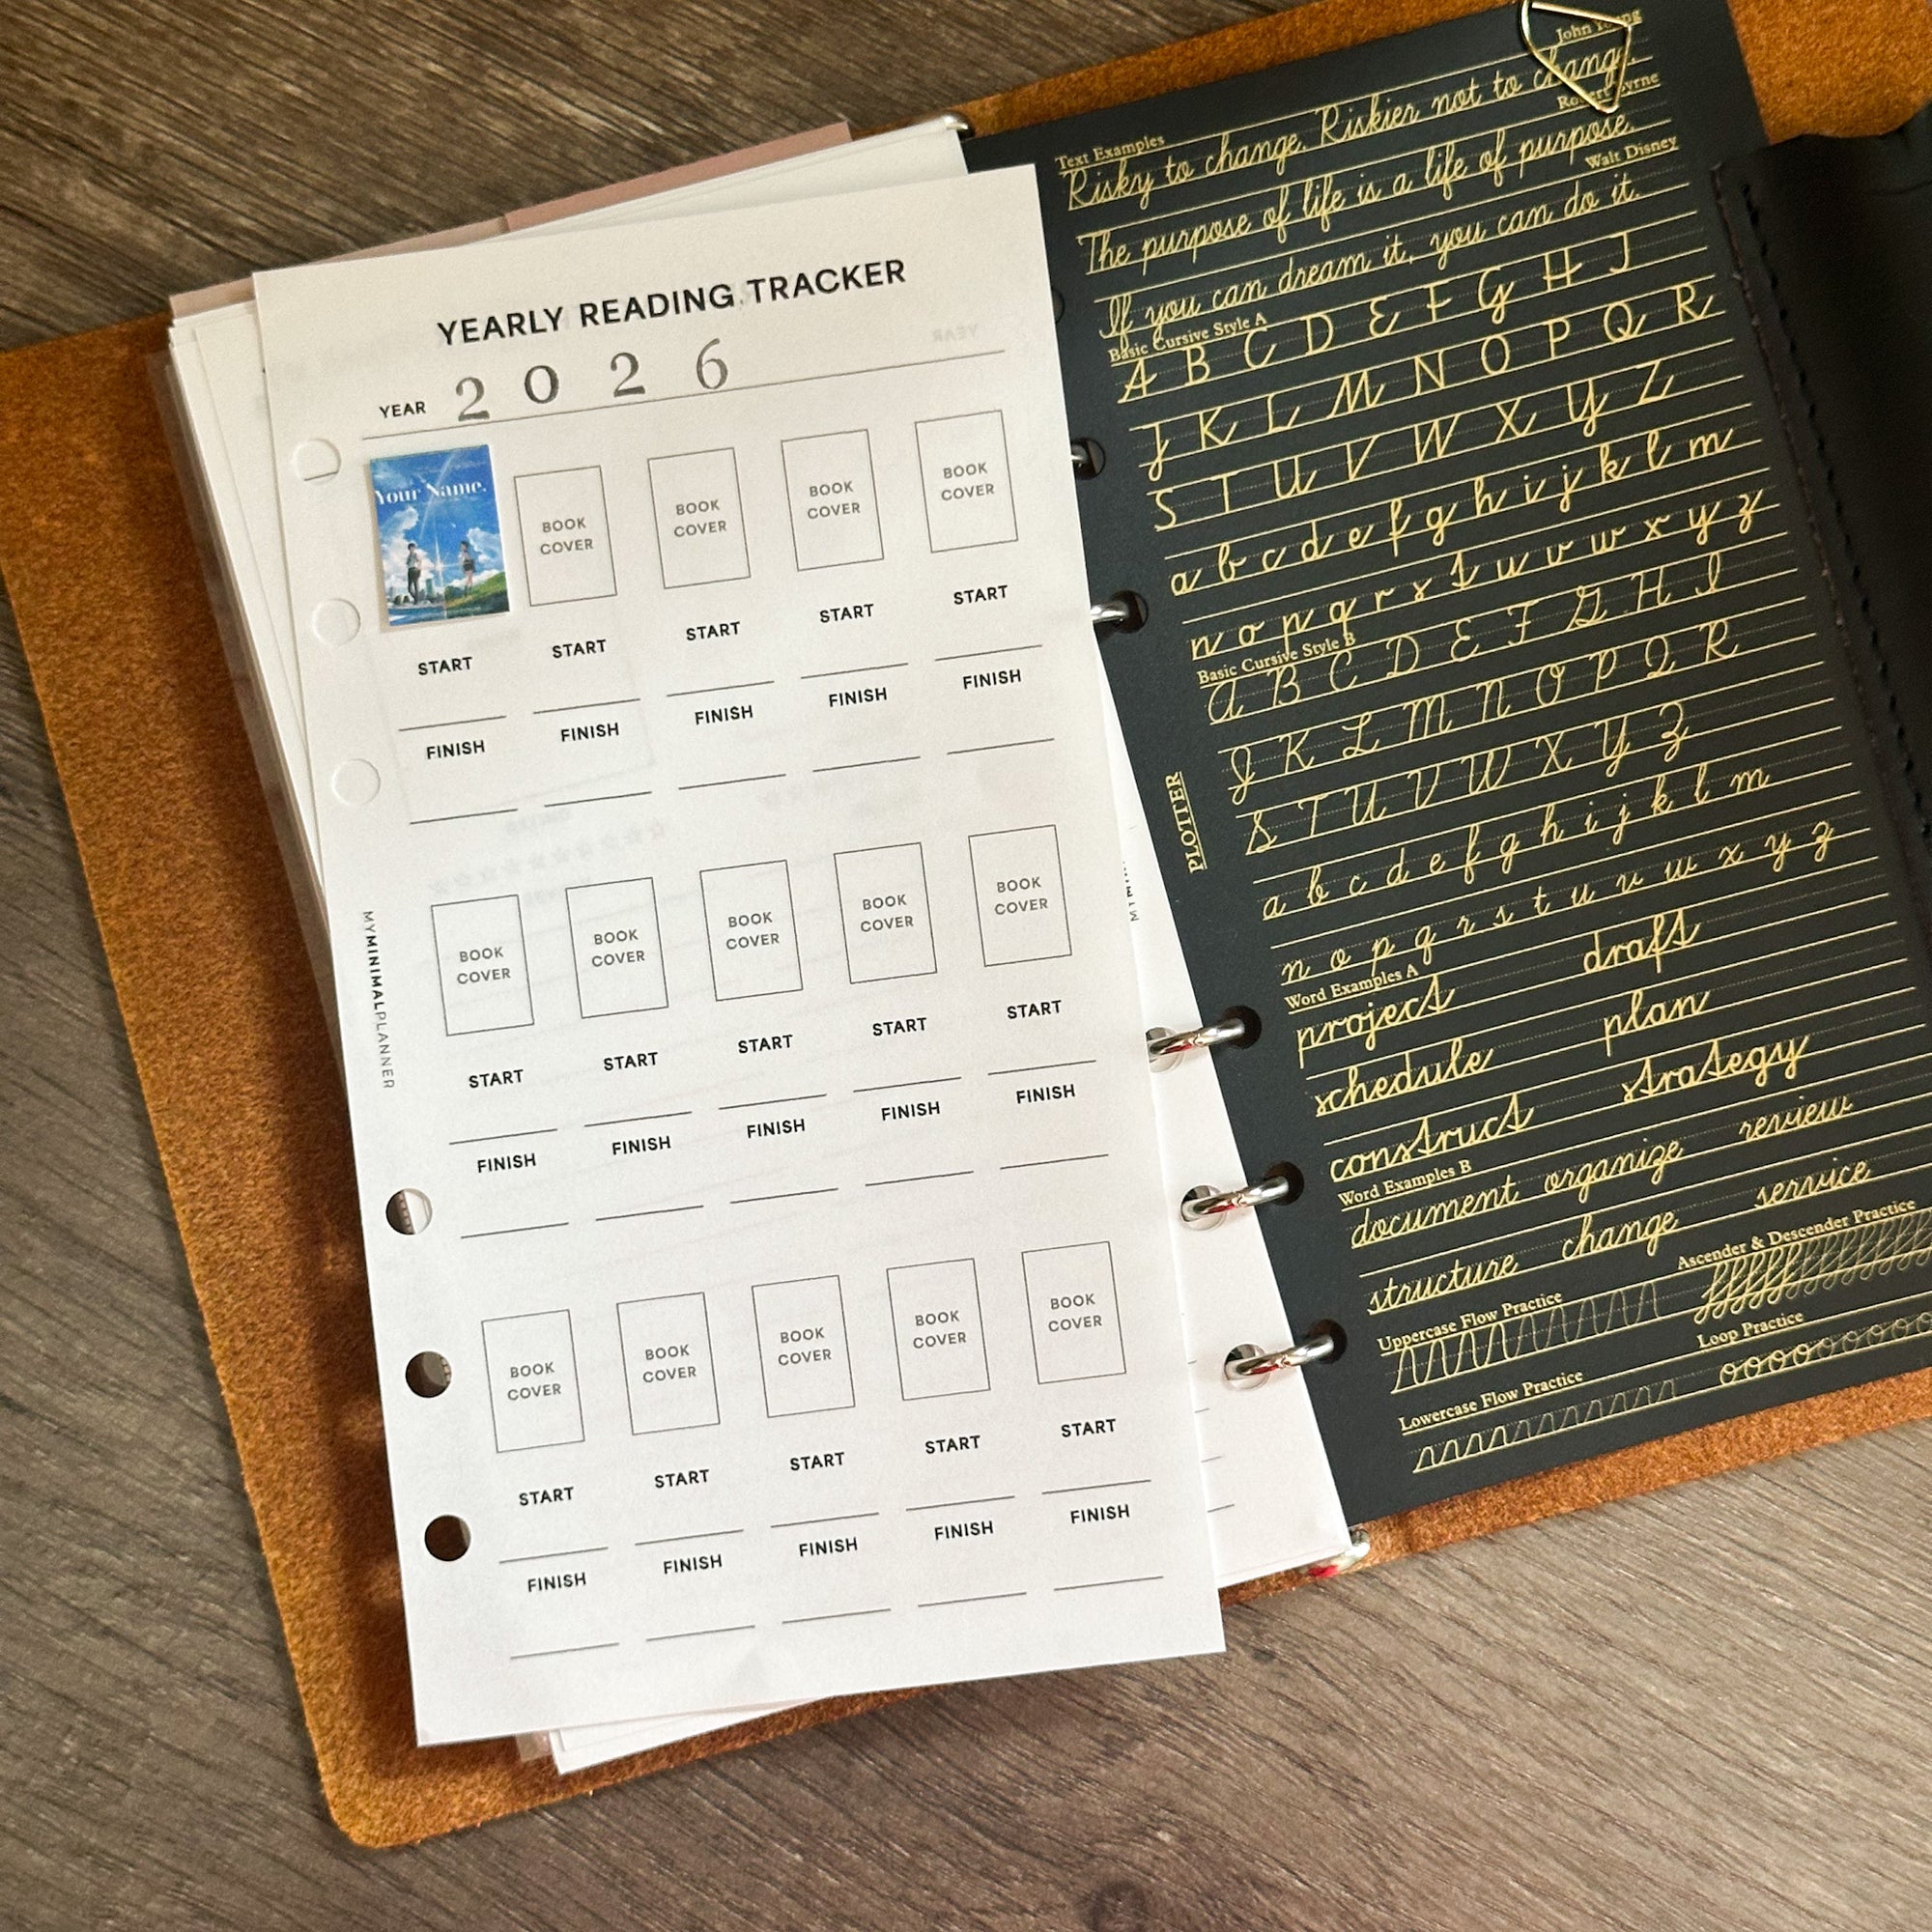 YEARLY READING TRACKER
YEAR 2 0 2 6
Your Name.
BOOK COVER BOOK COVER BOOK COVER BOOK COVER
START START START START START
FINISH FINISH FINISH FINISH FINISH
BOOK COVER BOOK COVER BOOK COVER BOOK COVER BOOK COVER
START START START START START
FINISH FINISH FINISH FINISH FINISH
BOOK COVER BOOK COVER BOOK COVER BOOK COVER BOOK COVER
START START START START START
FINISH FINISH FINISH FINISH FINISH
MYMINIMALPLANNER
John
Text Examples
Risky to change. Riskier not to change.
Robert Byrne
The purpose of life is a life of purpose.
Walt Disney
If you can dream it, you can do it.
Basic Cursive Style A
A B C D E F G H I
J K L M N O P Q R
S T U V W X Y Z
a b c d e f g h i j k l m
n o p q r s t u v w x y z
Basic Cursive Style B
A B C D E F G H I
J K L M N O P Q R
S T U V W X Y Z
a b c d e f g h i j k l m
n o p q r s t u v w x y z
Word Examples A
project draft
schedule plan
construct strategy
Word Examples B
document organize review
structure change service
Uppercase Flow Practice
Ascender & Descender Practice
Lowercase Flow Practice
Loop Practice
PLOTTER